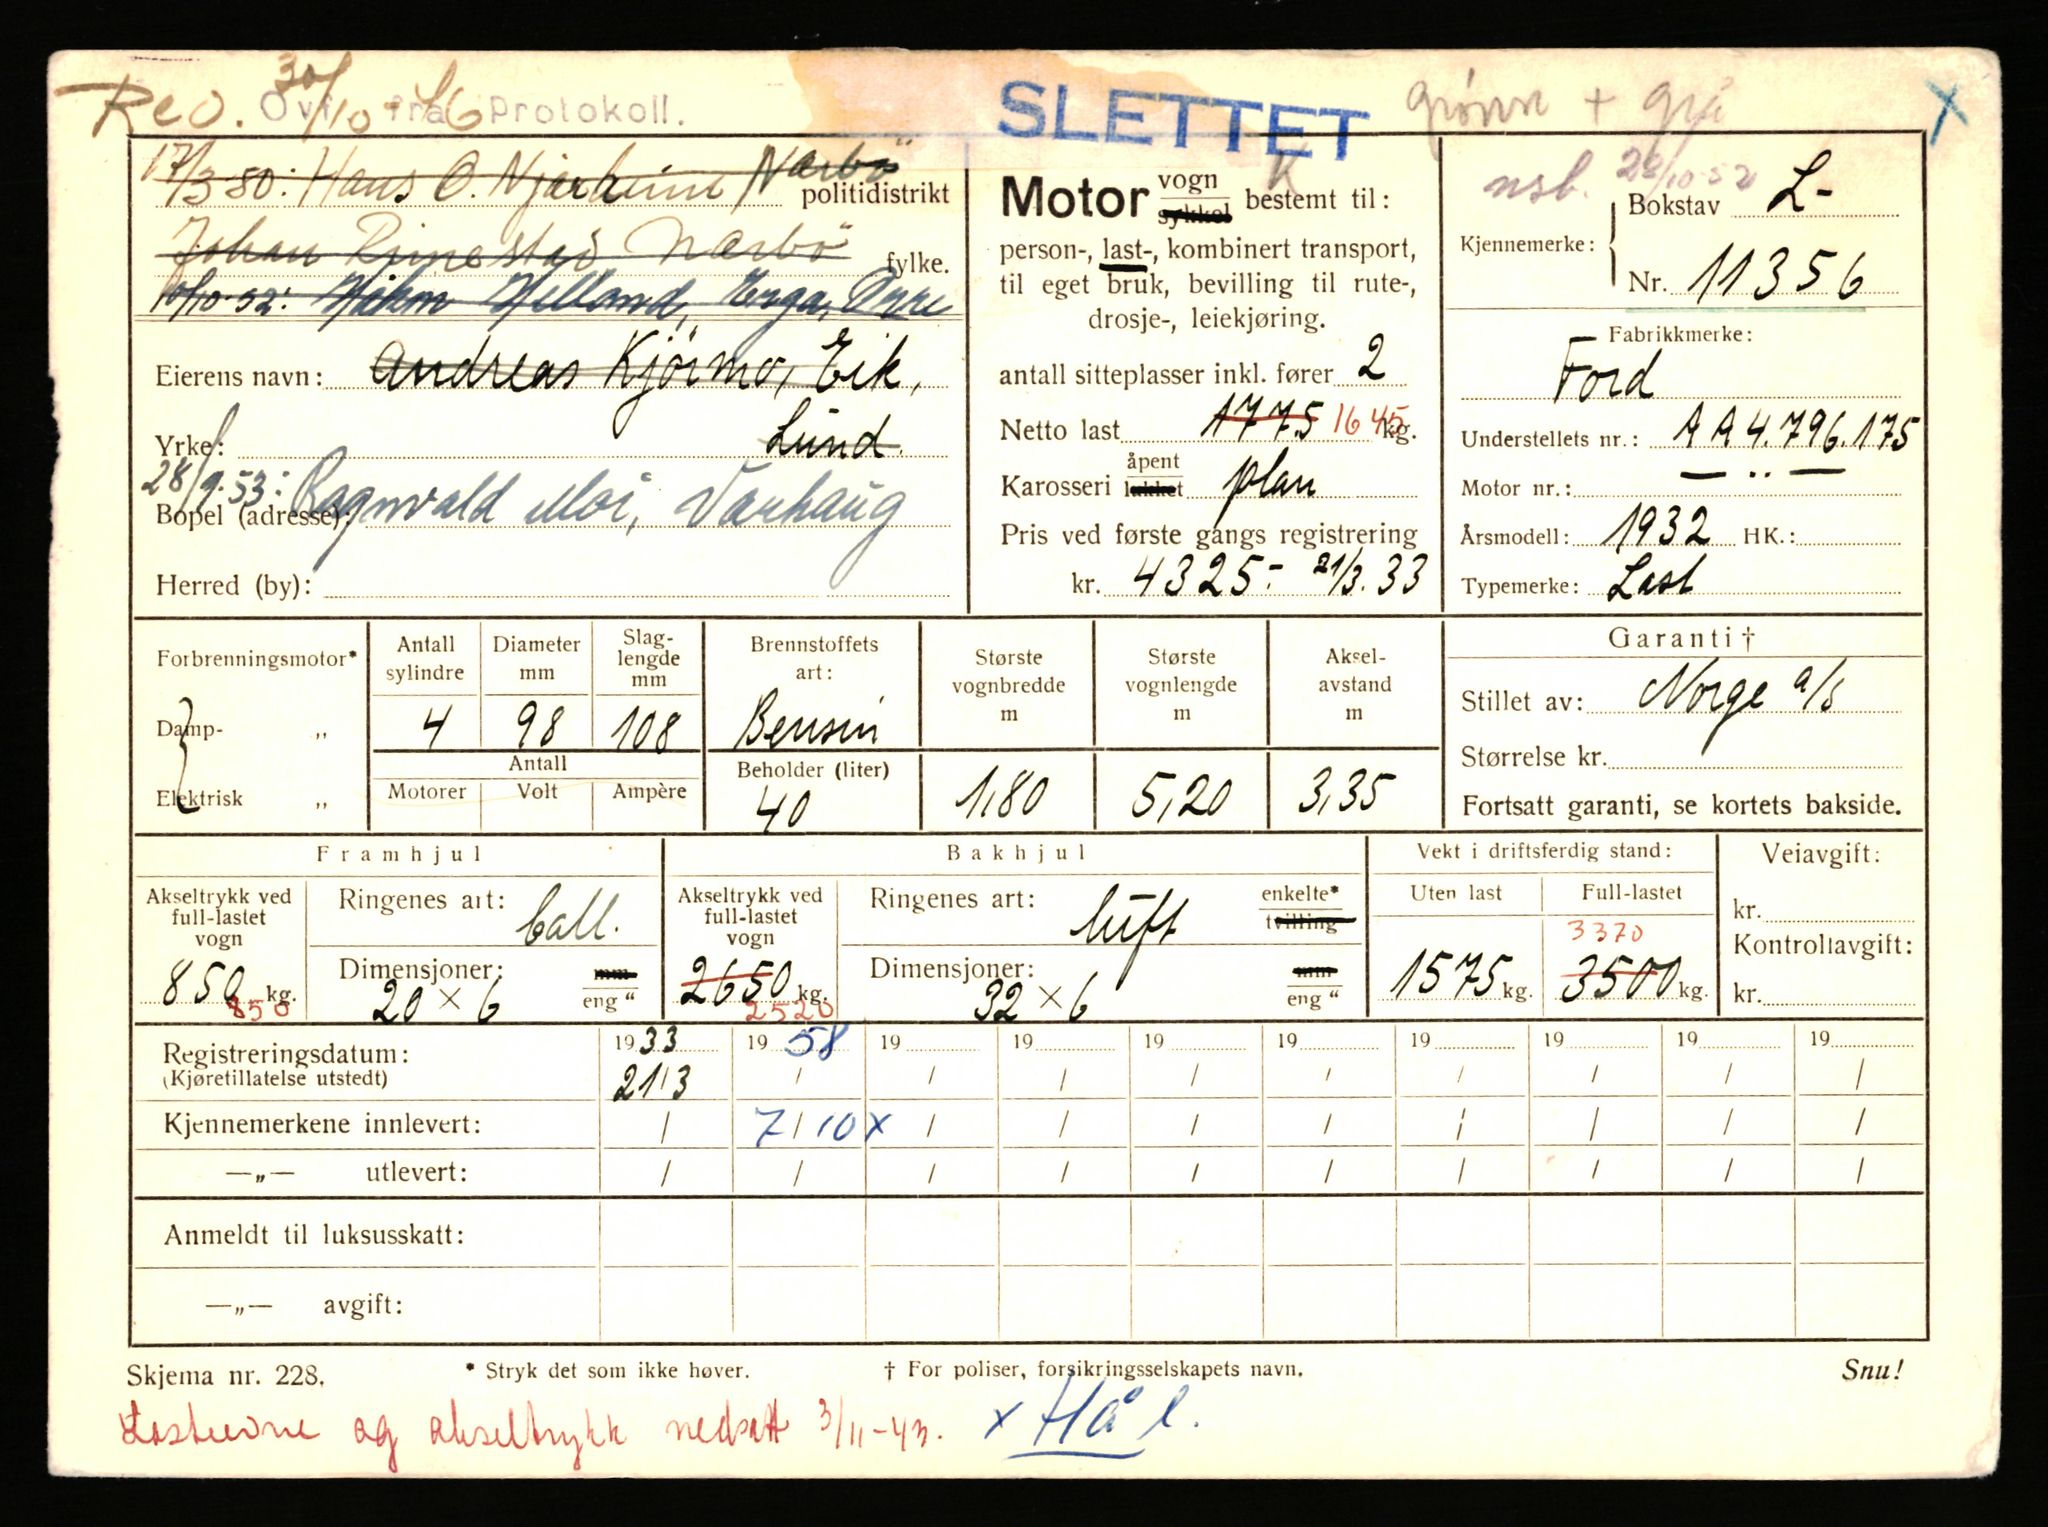 Reo. 30/10-46
Ovf. fra Protokoll.
SLETTET
grønn + grå
X
17/3 50: Hans O. Njärheim Nærbö
politidistrikt
Johan Rimestad Nærbö
fylke.
10/10-52: Håkon Helland, Erga, Orre
Eierens navn: Andreas Kjörmo, Eik,
Yrke: Lund.
28/9.53: Ragnvald Moi, Varhaug
Bopel (adresse):
Herred (by):
Motor vogn
sykkel
K
bestemt til:
person-, last-, kombinert transport,
til eget bruk, bevilling til rute-,
drosje-, leiekjøring.
antall sitteplasser inkl. fører 2
Netto last 1775 1645 kg.
Karosseri åpent
lukket
plan
Pris ved første gangs registrering
kr. 4325.- 21/3.33
nsb. 28/10-52
Kjennemerke:
Bokstav L-
Nr. 11356
Fabrikkmerke:
Ford
Understellets nr.: AA 4.796.175
Motor nr.: — .. —
Årsmodell: 1932 HK.:
Typemerke: Last
Forbrenningsmotor*
Damp- „
Elektrisk „
Antall sylindre
4
Diameter mm
98
Slag-lengde mm
108
Antall
Motorer Volt Ampère
Brennstoffets art:
Bensin
Beholder (liter)
40
Største vognbredde m
1,80
Største vognlengde m
5,20
Aksel-avstand m
3,35
Garanti †
Stillet av: Norge a/s
Størrelse kr.
Fortsatt garanti, se kortets bakside.
Framhjul
Akseltrykk ved full-lastet vogn
850 kg.
850
Ringenes art: ball.
Dimensjoner: mm
20 × 6 eng "
Bakhjul
Akseltrykk ved full-lastet vogn
2650 kg.
2520
Ringenes art: luft enkelte*
tvilling
Dimensjoner: mm
32 × 6 eng "
Vekt i driftsferdig stand:
Uten last
1575 kg.
Full-lastet
3370
3500 kg.
Veiavgift:
kr.
Kontrollavgift:
kr.
Registreringsdatum: 1933 1958 19 19 19 19 19 19 19 19
(Kjøretillatelse utstedt) 21/3 / / / / / / / / /
Kjennemerkene innlevert: / 7/10 x / / / / / / / /
—„— utlevert: / / / / / / / / / /
Anmeldt til luksusskatt:
—„— avgift:
Skjema nr. 228.
* Stryk det som ikke høver.
† For poliser, forsikringsselskapets navn.
Snu!
Lasteevne og akseltrykk nedsatt 3/11-43.
x Hå l.